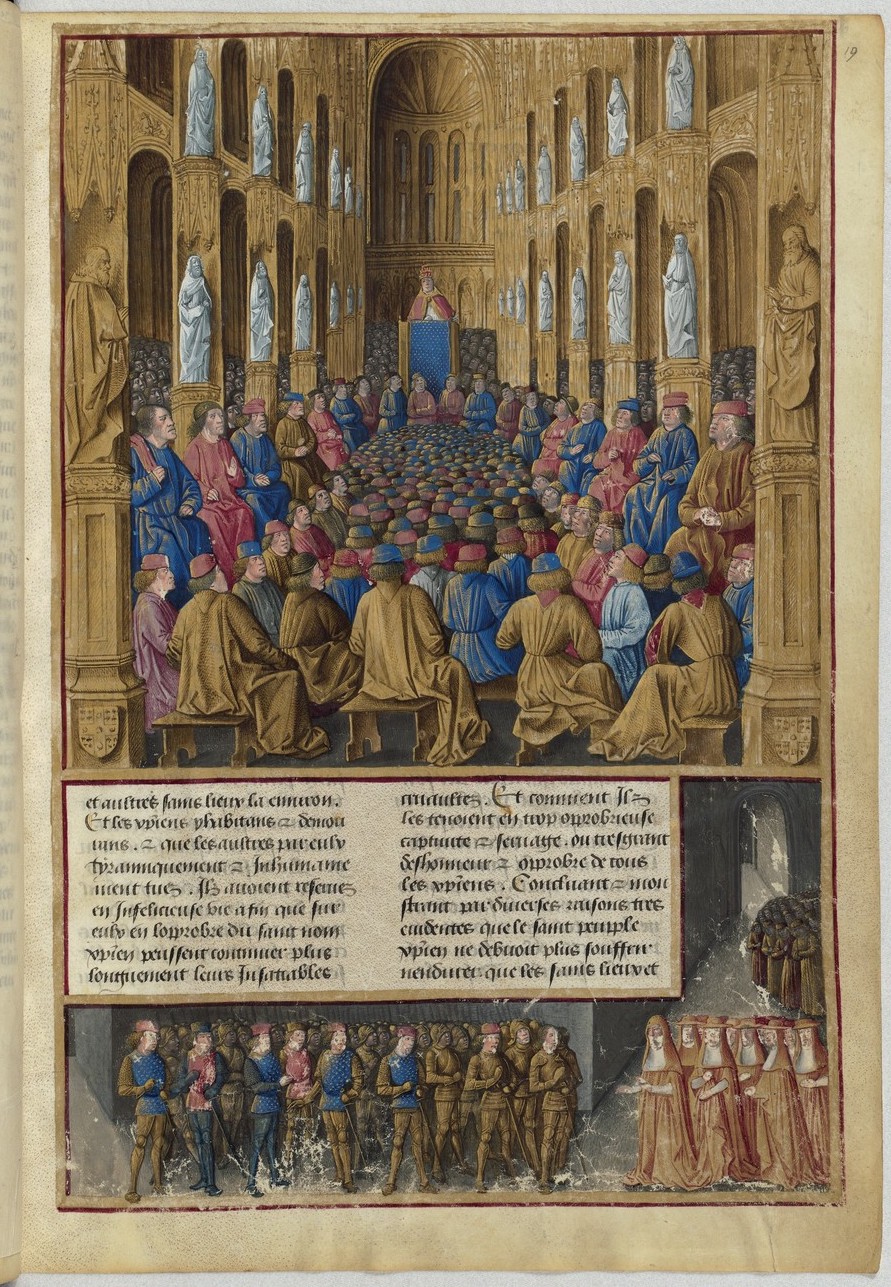 19
et aultres sains lieux la enuiron.
Et les xpiens yhabitans & demou
rans. & que les aultres par eulx
tyranniquement & Inhumaine
ment tues. Ilz auoient reserues
en Infelicieuse vie afin que sur
eulx en lopprobre du saint nom
xpien peussent continuer plus
longuement leurs Insatiables
cruaultes. Et comment Ilz
les tenoient en trop opprobrieuse
captiuite & seruage. ou tresgrant
deshonneur & opprobre de tous
les xpiens. Concluant & mon
strant par diuerses raisons tres
euidentes que le saint peuple
xpien ne debuoit plus souffrir
nendurer que les sains lieux et